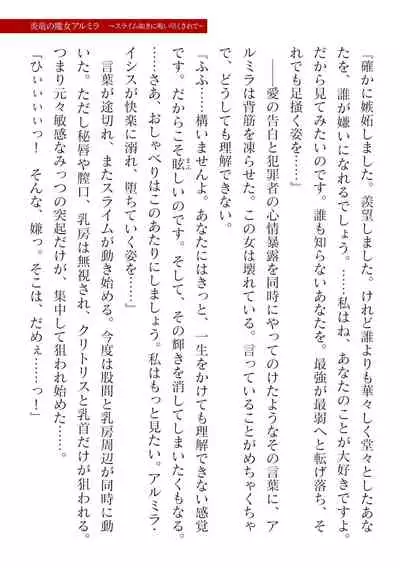 炎竜の魔女アルミラ ～スライム如きに喰い尽くされて～
『確かに嫉妬しました。羨望しました。けれど誰よりも華々しく堂々としたあな
たを、誰が嫌いになれるでしょう。……私はね、あなたのことが大好きですよ。
だから見てみたいのです。誰も知らないあなたを。最強が最弱へと転げ落ち、そ
れでも足掻く姿を……』
――愛の告白と犯罪者の心情暴露を同時にやってのけたようなその言葉に、ア
ルミラは背筋を凍らせた。この女は壊れている。言っていることがめちゃくちゃ
で、どうしても理解できない。
『ふふ……構いませんよ。あなたにはきっと、一生をかけても理解できない感覚
です。だからこそ眩しいのです。そして、その輝きを消してしまいたくもなる。
……さあ、おしゃべりはこのあたりにしましょう。私はもっと見たい。アルミラ・
イシスが快楽に溺れ、堕ちていく姿を……』
言葉が途切れ、またスライムが動き始める。今度は股間と乳房周辺が同時に動
いた。ただし秘唇や膣口、乳房は無視され、クリトリスと乳首だけが狙われる。
つまり元々敏感なみっつの突起だけが、集中して狙われ始めた……。
「ひぃぃぃぃっ！　そんな、嫌っ。そこは、だめぇ……っ！」